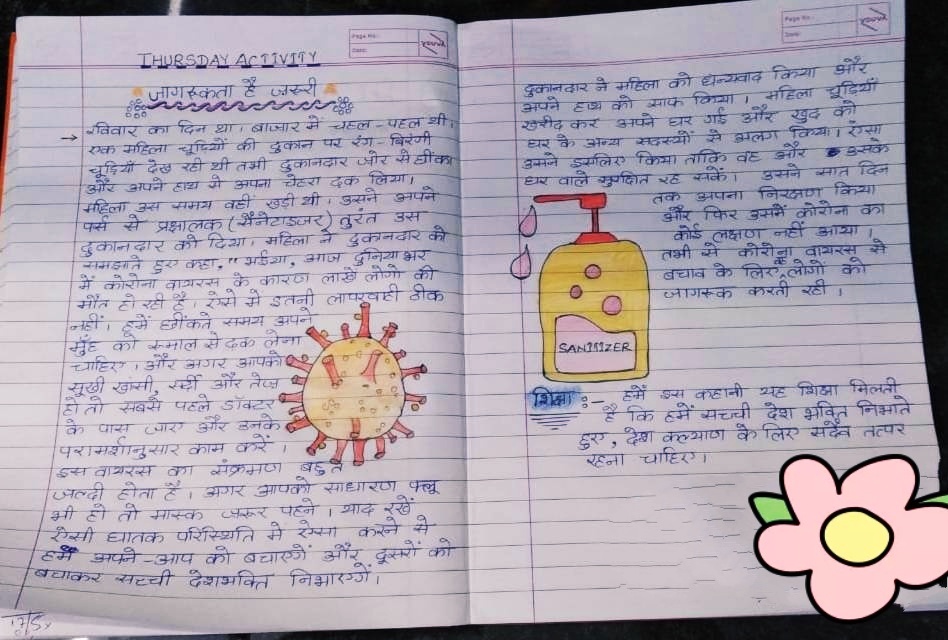 THURSDAY ACTIVITY
जागरूकता है जरूरी
Page No.:
Date:
youva
→ रविवार का दिन था। बाजार में चहल-पहल थी।
एक महिला चूड़ियों की दुकान पर रंग-बिरंगी
चूड़ियाँ देख रही थी तभी दुकानदार जोर से छींका
और अपने हाथ से अपना चेहरा ढक लिया।
महिला उस समय वहीं खड़ी थी। उसने अपने
पर्स से प्रक्षालक (सैनेटाइजर) तुरंत उस
दुकानदार को दिया। महिला ने दुकानदार को
समझाते हुए कहा," भईया, आज दुनिया भर
में कोरोना वायरस के कारण लाखों लोगो की
मौत हो रही है। ऐसे में इतनी लापरवाही ठीक
नहीं। हमें छींकते समय अपने
मुँह को रूमाल से ढक लेना
चाहिए। और अगर आपको
सूखी खांसी, सर्दी और तेज
हो तो सबसे पहले डॉक्टर
के पास जाए और उनके
परामर्शानुसार काम करें।
इस वायरस का संक्रमण बहुत
जल्दी होता है। अगर आपको साधारण फ्लू
भी हो तो मास्क जरूर पहने। याद रखें
ऐसी घातक परिस्थिति में ऐसा करने से
हमें अपने-आप को बचाएगें और दूसरों को
बचाकर सच्ची देशभक्ति निभाएगें।
Page No.:
Date:
youva
दुकानदार ने महिला को धन्यवाद किया और
अपने हाथ को साफ किया। महिला चूड़ियाँ
खरीद कर अपने घर गई और खुद को
घर के अन्य सदस्यों से अलग किया। ऐसा
उसने इसलिए किया ताकि वह और उसके
घर वाले सुरक्षित रह सकें। उसने सात दिन
तक अपना निरक्षण किया
और फिर उसमें कोरोना का
कोई लक्षण नहीं आया।
तभी से कोरोना वायरस से
बचाव के लिए, लोगो को
जागरूक करती रही।
SANITIZER
शिक्षा :- हमें इस कहानी यह शिक्षा मिलती
है कि हमें सच्ची देश भक्ति निभाते
हुए, देश कल्याण के लिए सदैव तत्पर
रहना चाहिए।